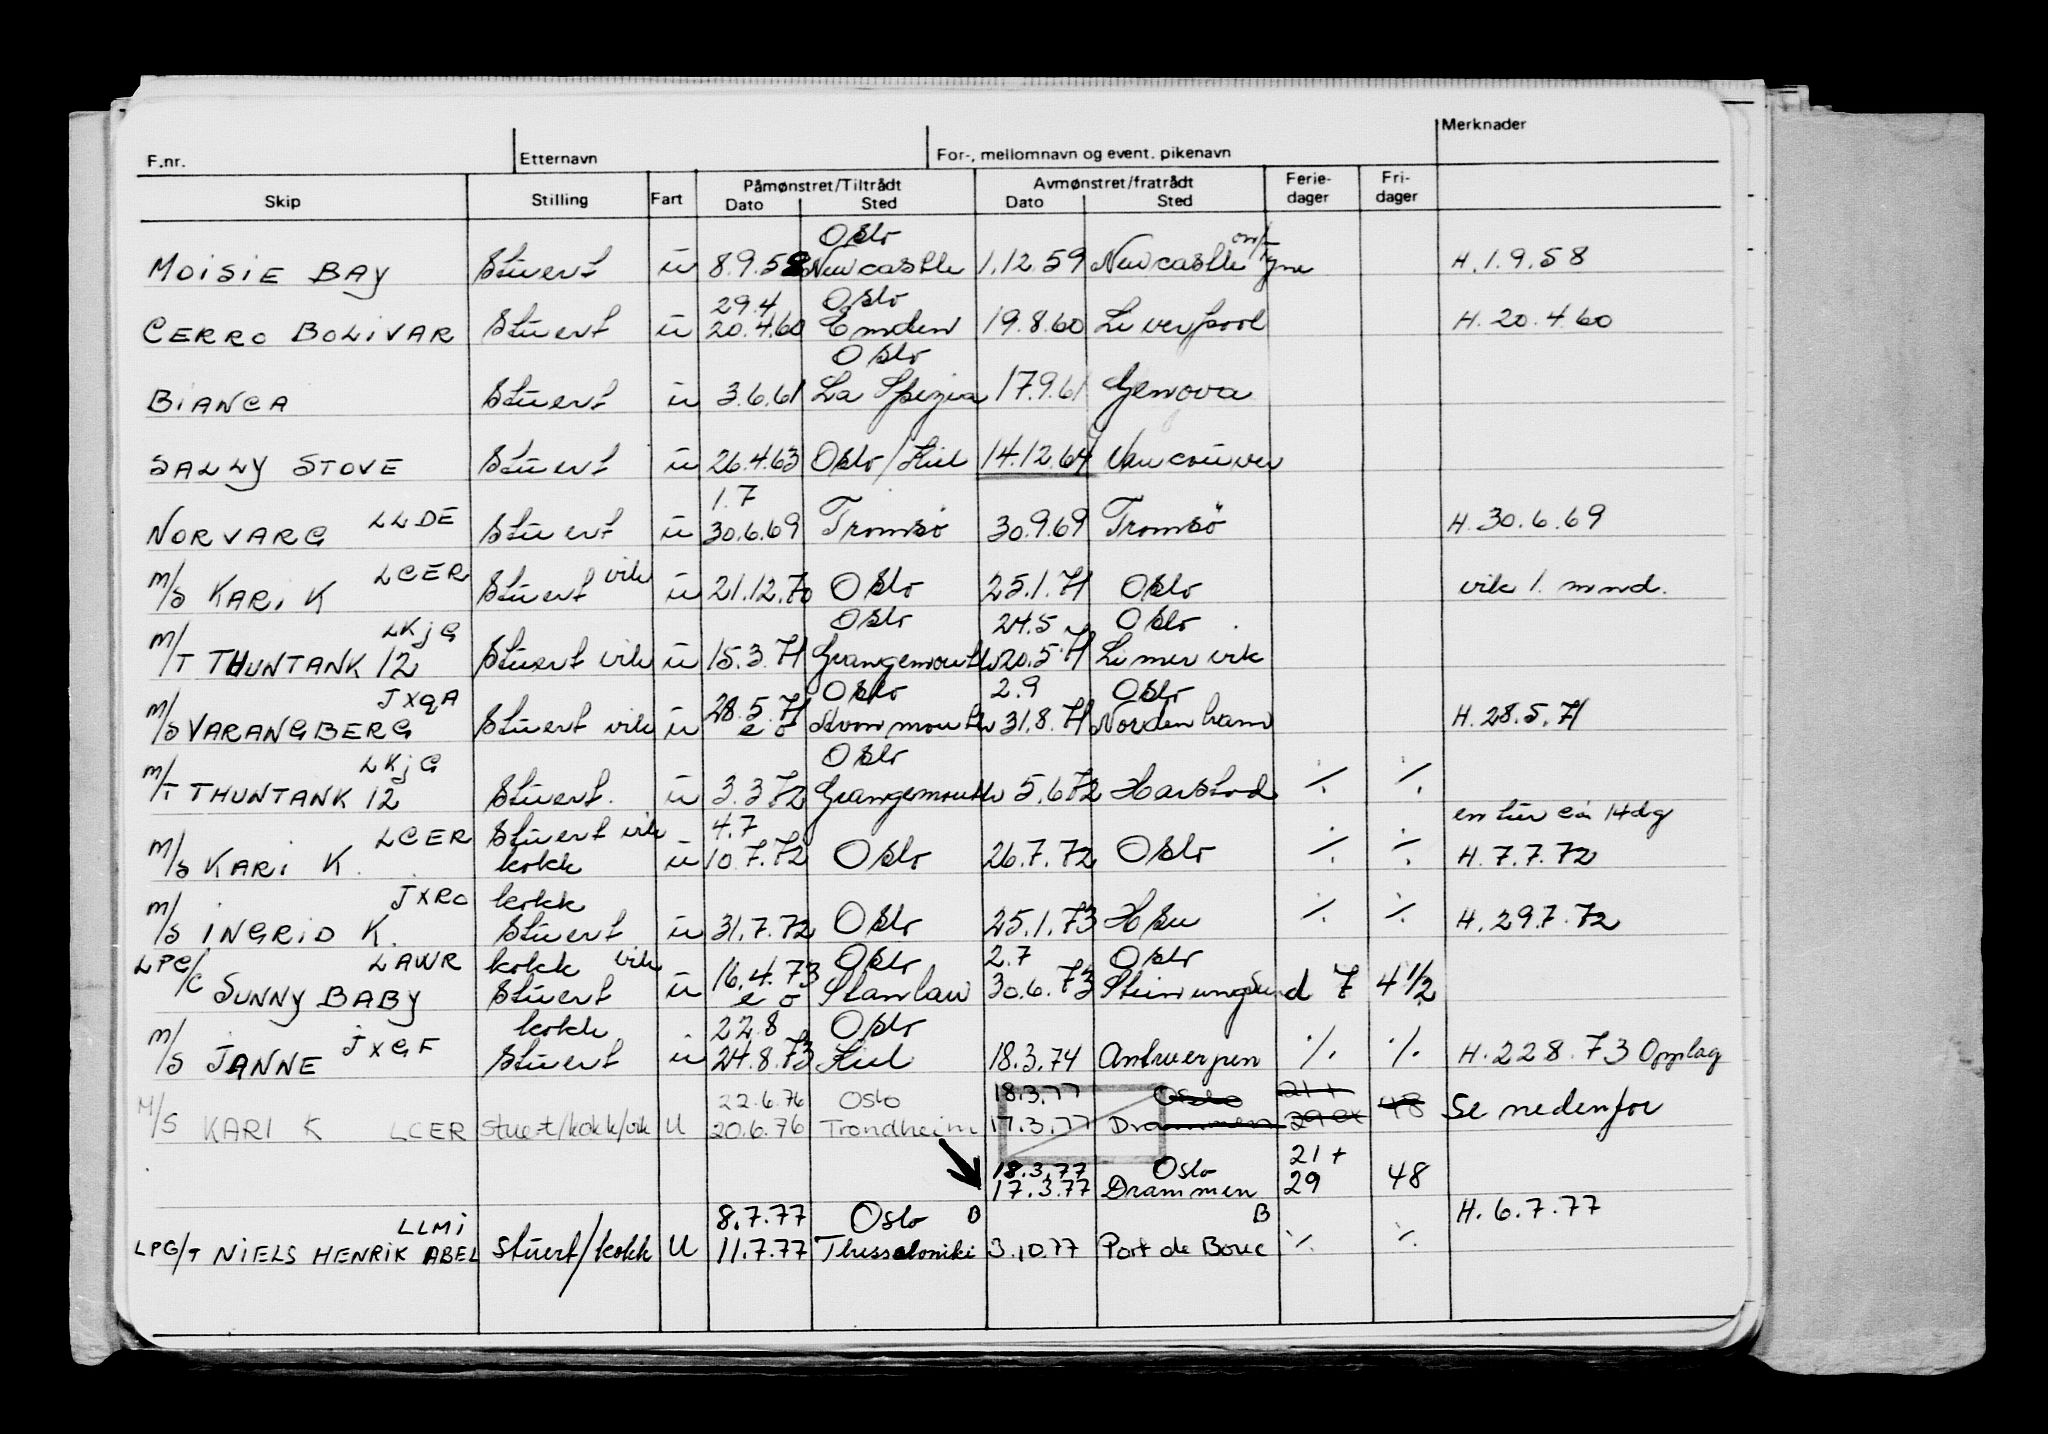 F.nr. Etternavn For-, mellomnavn og event. pikenavn Merknader
Skip Stilling Fart Påmønstret/Tiltrådt Dato Sted Avmønstret/fratrådt Dato Sted Ferie-dager Fri-dager
Oslo on/
MOISIE BAY Stuert u 8.9.58 Newcastle 1.12.59 Newcastle Tyne H.1.9.58
29.4 Oslo
CERRO BOLIVAR Stuert u 20.4.60 Emden 19.8.60 Liverpool H.20.4.60
Oslo
BIANCA Stuert u 3.6.61 La Spezia 17.9.61 Genova
SALLY STOVE Stuert u 26.4.63 Oslo/Kiel 14.12.64 Vancouver
LLDE 1.7
NORVARG Stuert u 30.6.69 Tromsø 30.9.69 Tromsö H.30.6.69
LCER vik
M/S KARI K Stuert u 21.12.70 Oslo 25.1.71 Oslo vik 1. mnd.
LKJG Oslo 24.5 Oslo
M/T THUNTANK 12 Stuert vik u 15.3.71 Grangemouth 20.5.71 Limervik
JXQA Oslo 2.9 Oslo
M/S VARANGBERG Stuert vik u 28.5.71 e o Avonmouth 31.8.71 Nordenham H.28.5.71
LKJG Oslo
M/T THUNTANK 12 Stuert. u 3.3.72 Grangemouth 5.6.72 Harstad ⁒ ⁒
LCER Stuert vik 4.7 en tur ca 14dg
M/S KARI K. kokk u 10.7.72 Oslo 26.7.72 Oslo ⁒ ⁒ H.7.7.72
JXRO kokk
M/S INGRID K. Stuert u 31.7.72 Oslo 25.1.73 ⁒ ⁒ H.29.7.72
LAWR kokk vik Oslo 2.7 Oslo
LPG/C SUNNY BABY Stuert u 16.4.73 e o Stanlow 30.6.73 Stenungsund 7 4 1/2
JXGF kokk 22.8 Oslo
M/S JANNE Stuert u 24.8.73 Kiel 18.3.74 Antwerpen ⁒ ⁒ H.22.8.73 Opplag
22.6.76 Oslo 18.3.77 Oslo 21+ 48
M/S KARI K LCER Stuert/kokk/vik U 20.6.76 Trondheim 17.3.77 Drammen 29 Se nedenfor
18.3.77 Oslo 21+
17.3.77 Drammen 29 48
LLMI 8.7.77 Oslo B B H.6.7.77
LPG/T NIELS HENRIK ABEL stuert/kokk U 11.7.77 Thessaloniki 3.10.77 Port de Bouc ⁒ ⁒